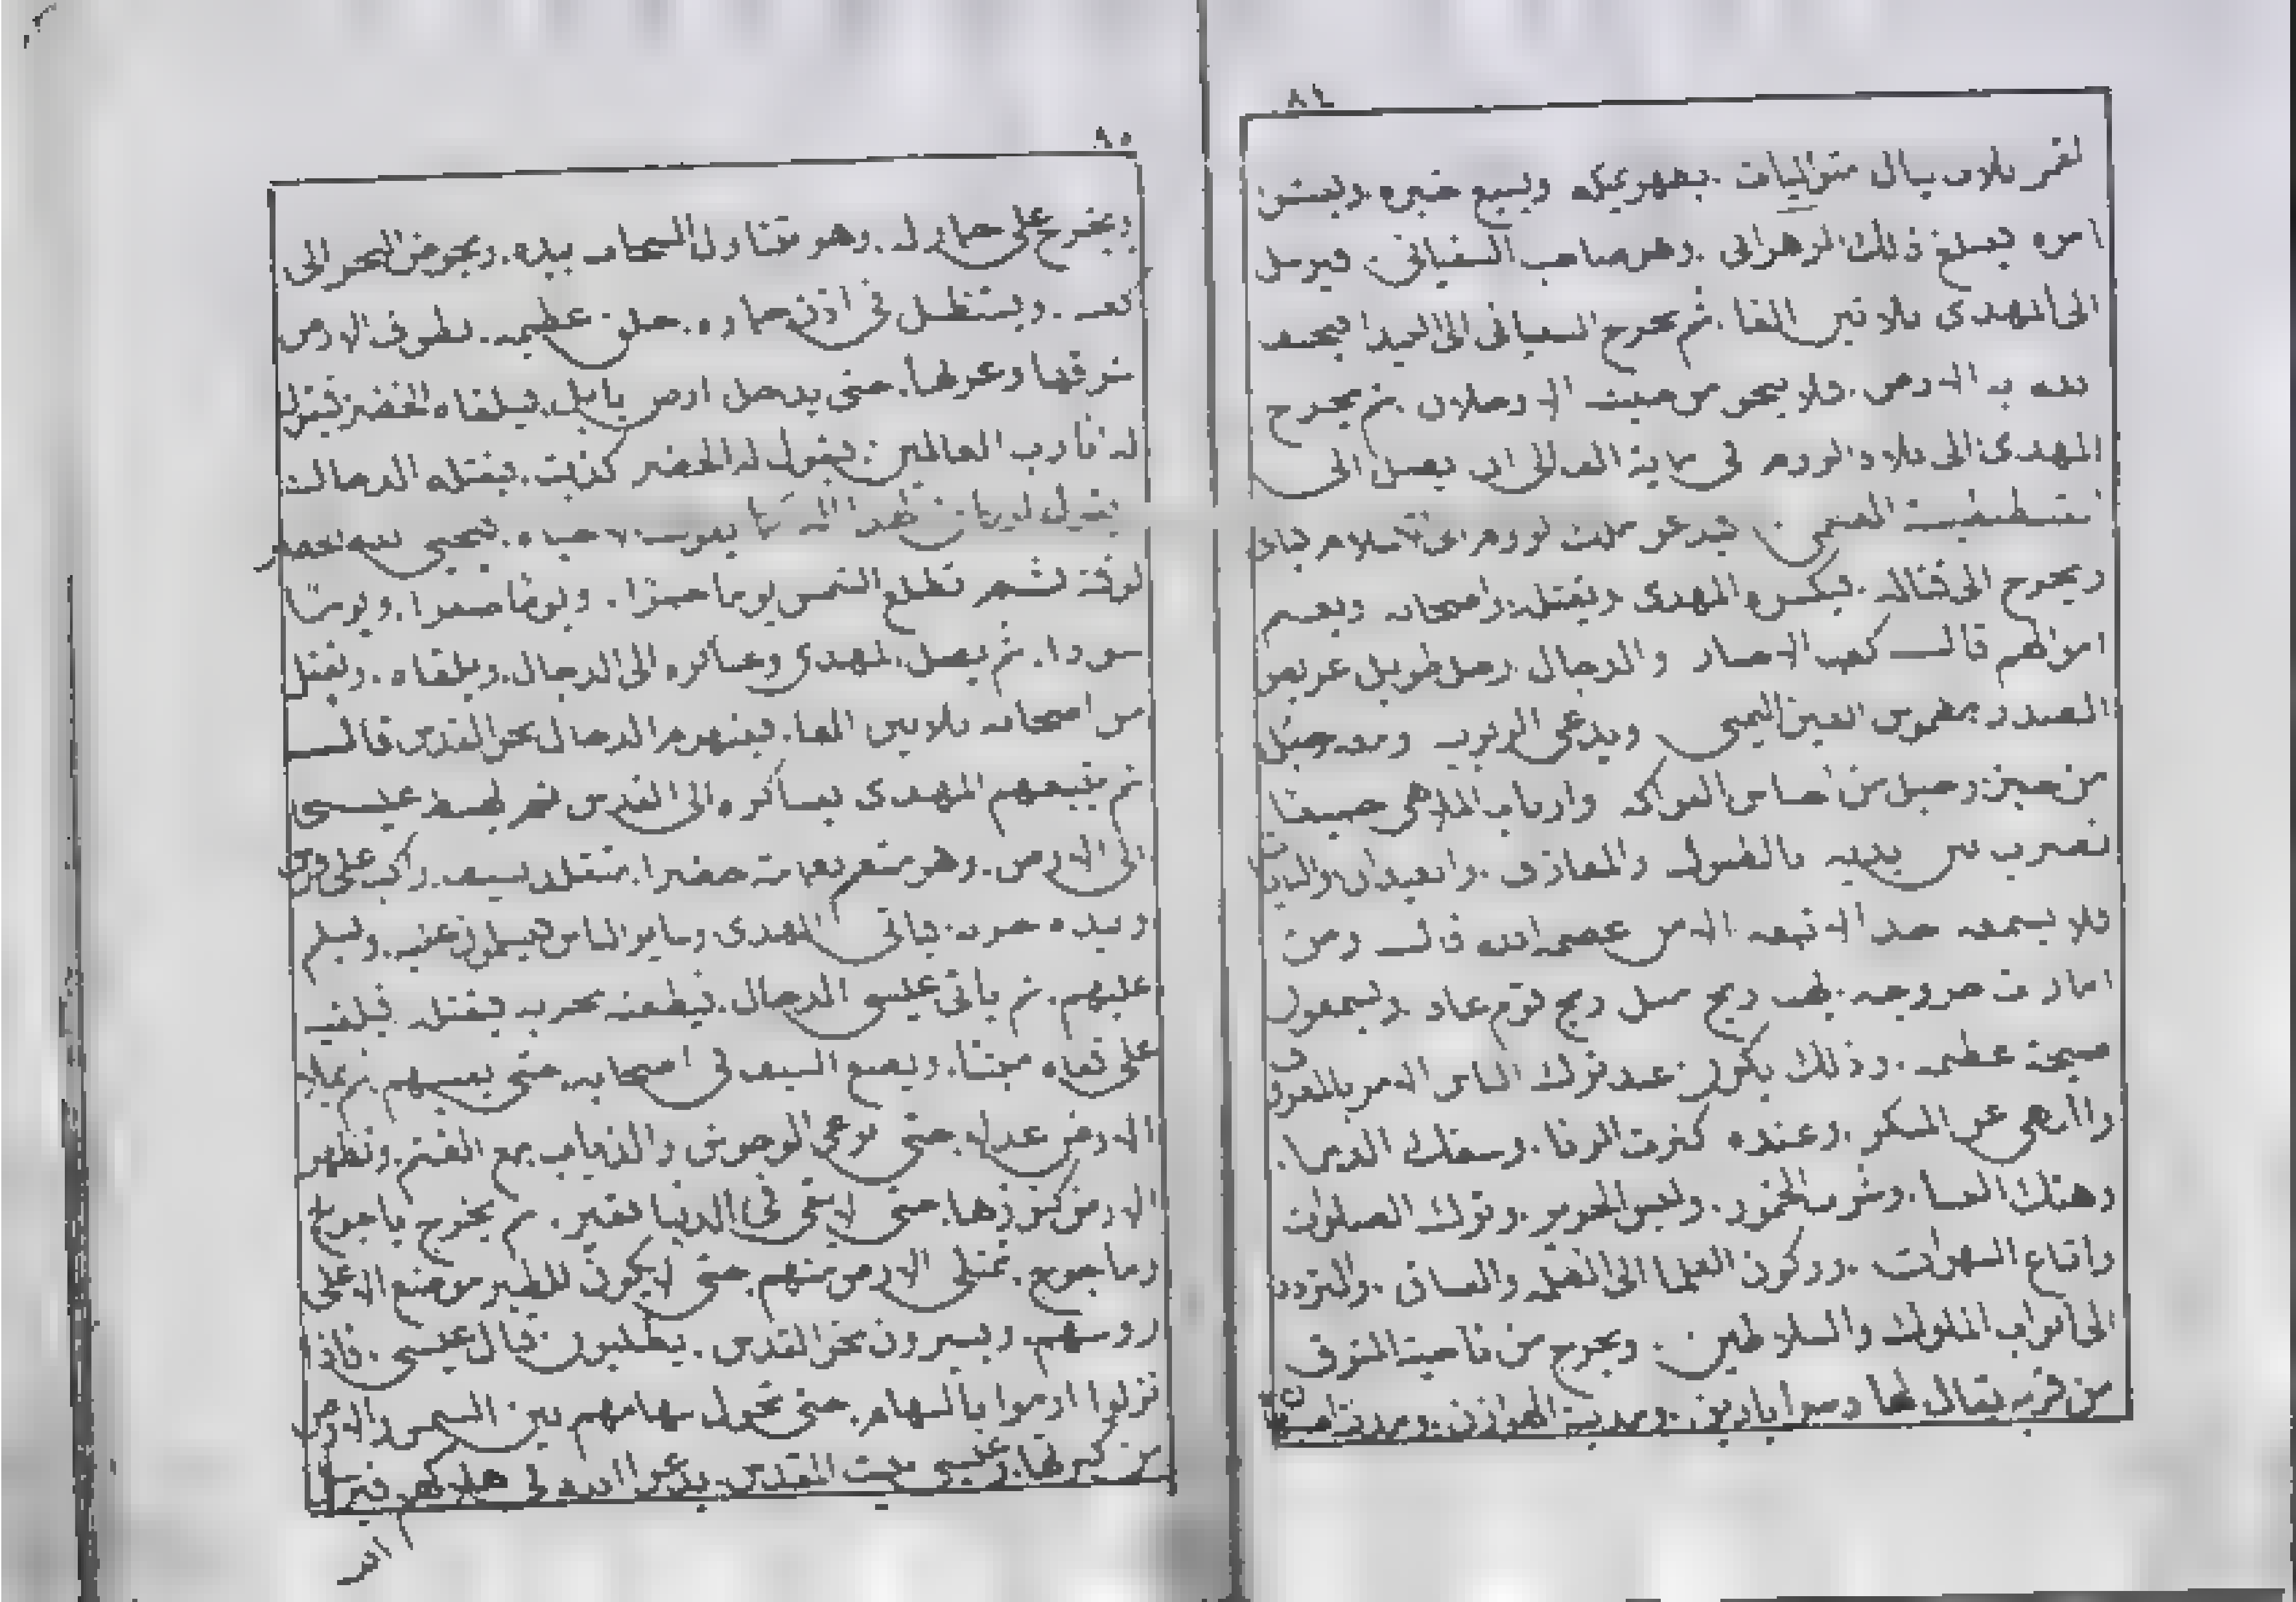 ٨٤
ثلاث ليال متواليات. يظهر بمكة ويشيع خبره. وينتشر
امره فيبلغ ذلك الزهراني. وهو صاحب السفياني. فيرسل
الى المهدى ثلاثين الفا. ثم يخرج السفياني الى البيدا فيخسف
الله به الارض. فلا ينجو من جيشه الا رجلان. ثم يخرج
المهدى الى بلاد الروم في ماية الف الى ان يصل الى
قسطنطينية العظمى. فيدعو ملك الروم الى الاسلام فيابى
ويخرج الى قتاله. فيكسره المهدى ويقتله واصحابه ويغنم
اموالهم قال كعب الاحبار والدجال رجل طويل عريض
الصدر مطموس العين اليمنى ويدعى الربوبية ومعه جبل
من خبز وجبل من اجناس الفواكه وارباب الملاهى جميعا
تضرب بين يديه بالطبول والمعازف. والعيدان والنايات
فلا يسمعه احد الا تبعه الا من عصمه الله قال ومن
امارات خروجه. تهب ريح مثل ريح قوم عاد. ويسمعون
صيحة عظيمة. وذلك يكون عند ترك الناس الامر بالمعروف
والنهى عن المنكر. وعنده كثرت الزنا. وسفك الدما.
وشرب الخمور. ولبس الحرير. وترك الصلوات
واتباع الشهوات. وركون العلما الى الظلمه والفساق. والتردد
الى ابواب الملوك والسلاطين. ويخرج من ناحية المشرق
من قرية يقال لها ومدينة الهوازن. ومدينة اصبهان
٩٥
ويخرج على حمار له. وهو يتناول السحاب بيده. ويخوض البحر الى
كعبه. ويستظل في اذن حماره. خلق عظيمه. يطوف الارض
شرقها وغربها. حتى يدخل ارض بابل. فيلقاه الخضر فيقول
له انا رب العالمين. فيقول له الخضر كذبت. فيقتله الدجال
فيحيى الله الخضر
لوقته ثم تطلع الشمس يوما حمرا. ويوما صفرا. ويوما
سودا. ثم يصل المهدى وعساكره الى الدجال. ويلقاه. ويقتل
من اصحابه ثلاثين الفا. فينهزم الدجال نحو القدس قال
ثم يتبعهم المهدى بعساكره الى القدس ثم يهبط عيسى
الى الارض. وهو متعمم بعمامة خضرا. متقلد بسيف. راكب على فرس
وبيده حربة. فياتى المهدى وساير الناس فيسلمون عليه. ويسلم
عليهم. ثم ياتى عيسى الدجال. فيطعنه بحربه فيقتله فيلقيه
على قفاه ميتا. ويضع السيف في اصحابه. حتى يفنيهم. ثم يملا
الارض عدلا. حتى ترعى الوحوش والذياب مع الغنم. وتظهر
الارض كنوزها. حتى لا يبقى في الدنيا فقير. ثم يخرج ياجوج
وماجوج. تمتلى الارض منهم. حتى لا يكون للطير موضع الا على
روسهم. ويسيرون نحو القدس. يطلبون قتال عيسى. فاذا
نزلوا ارموا بالسهام. حتى تحول سهامهم بين الشمس والارض
من كثرتها. وعيسى ببيت المقدس. يدعو الله في هلاكهم. فيرسل
الله